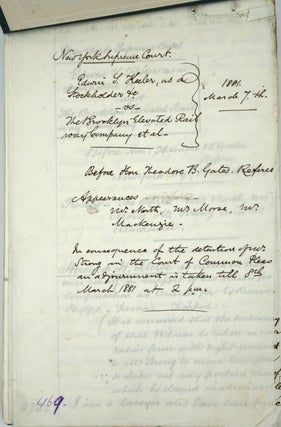 New York Supreme Court.
Edwin S. Keeler, as a
Stockholder &c
vs
The Brooklyn Elevated Rail
way Company et al.
1881.
March 7. th.
Before Hon. Theodore B. Gates. Referee
Appearances
Mr. North, Mr Morse, Mr.
Mackenzie.
In consequence of the detention of Mr.
Strong in the Court of Common Pleas
an adjournment is taken till 8th
March 1881 at 2 p.m.
469.